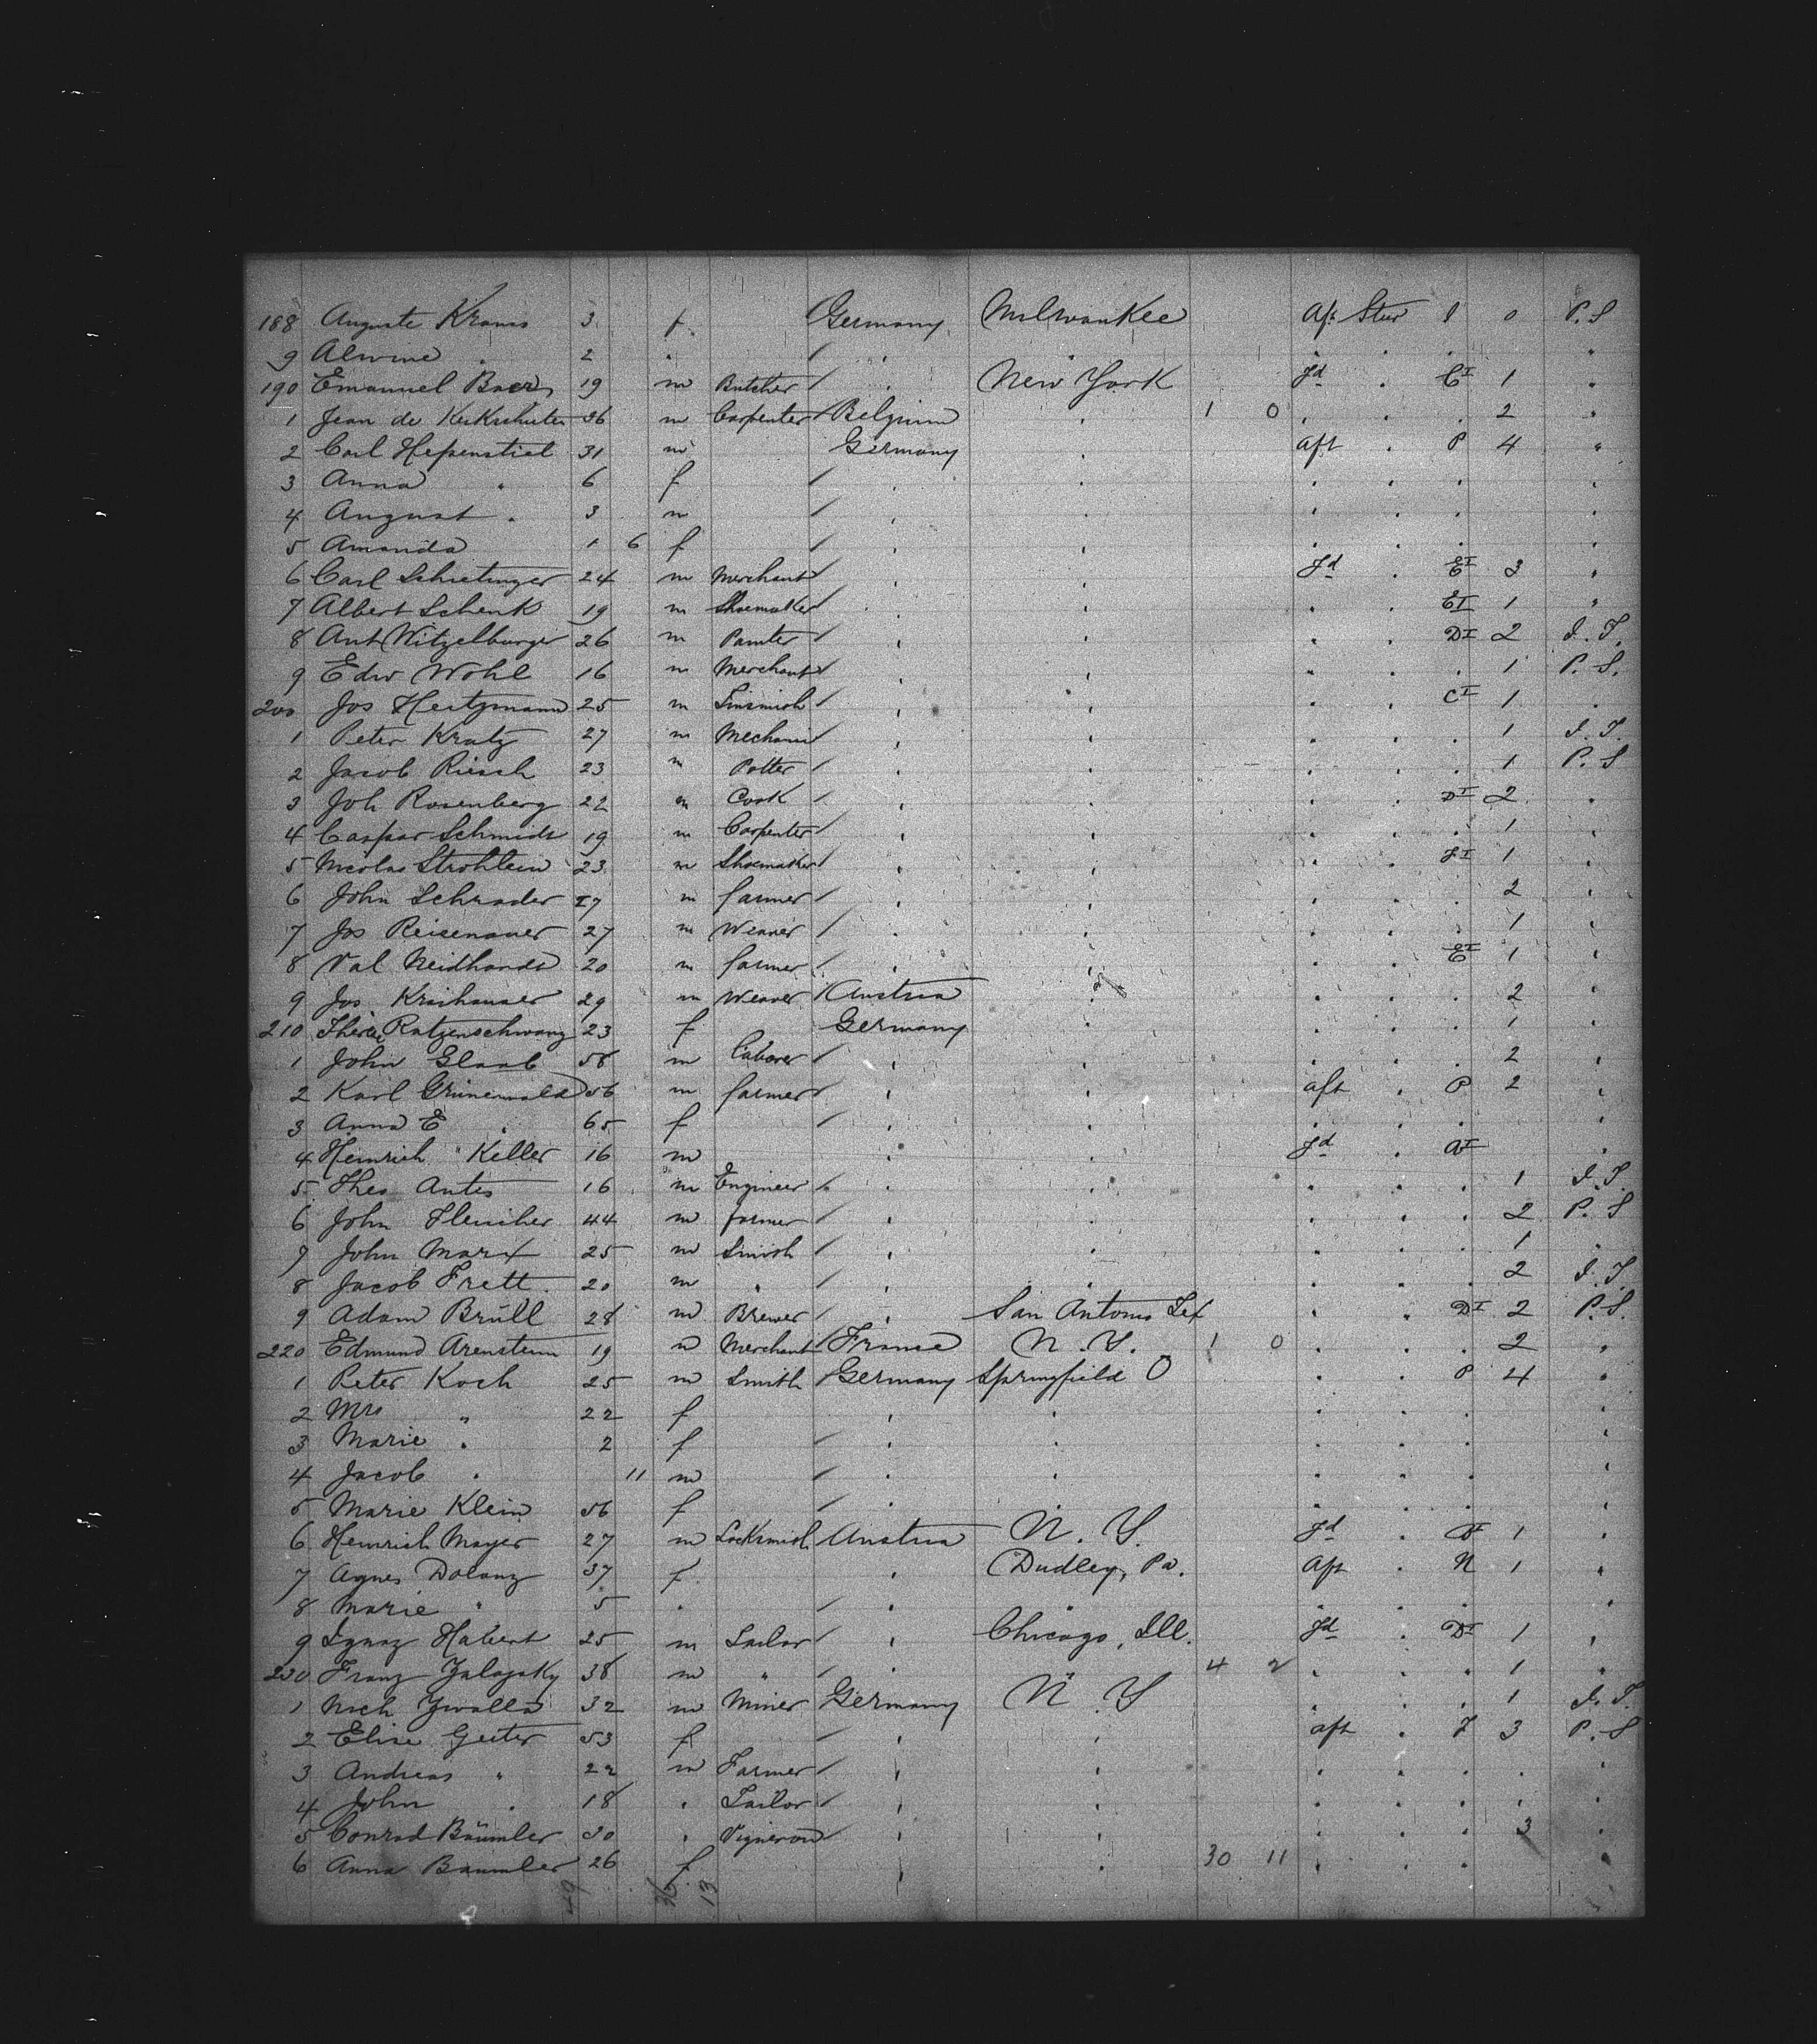 188 Auguste Krams 3 f. Germany Milwaukee Aft Stur 1 0 P. S
9 Alwine " 2 " / " " " " " "
190 Emanuel Baer 19 m Butcher / " New York Fd " C I 1 "
1 Jean de 36 m Carpenter / Belgium " 1 0 " " " 2 "
2 Carl Hepenstiel 31 m Germany " aft " P 4 "
3 Anna " 6 f / " " " " " "
4 August " 3 m / " " " " " "
5 Amanda 1 6 f / " " " " " "
6 Carl Schietinger 24 m Merchant / " " Fd " E I 3 "
7 Albert Schenk 19 m Shoemaker / " " " " E I 1 "
8 Ant Witzelburger 26 m Painter / " " " " D I 2 I. T.
9 Edw Wohl 16 m Merchant / " " " " " 1 P. S.
200 Jos Hertzmann 25 m Tinsmith / " " " " C I 1 "
1 Peter Kratz 27 m Mechanic / " " " " " 1 I. T.
2 Jacob Riesch 23 m Potter / " " " " " 1 P. S
3 Joh Rosenberg 22 m Cook / " " " " D I 2 "
4 Caspar Schmidt 19 m Carpenter / " " " " " 1 "
5 Nicolas Strohlein 23 m Shoemaker / " " " " F I 1 "
6 John Schrader 27 m farmer / " " " " " 2 "
7 Jos Reisenauer 27 m Weaver / " " " " " 1 "
8 Val Neidhardt 20 m farmer / " " " " E I 1 "
9 Jos Kreihauser 29 m Weaver / Austria " " " " 2 "
210 Therese Ratzenschwanz 23 f Germany " " " " 1 "
1 John Glaab 58 m laborer / " " " " " 2 "
2 Karl Grünewald 56 m farmer / " " aft " P 2 "
3 Anna E " 65 f / " " " " " "
4 Heinrich Keller 16 m " " Fd " A I "
5 Theo Antes 16 m Engineer / " " " " " 1 I. T.
6 John Fleischer 44 m farmer / " " " " " 2 P. S
7 John Marx 25 m Smith / " " " " " 1 "
8 Jacob Frett 20 m " / " " " " " 2 I. T.
9 Adam Brüll 28 m Brewer / " San Antonio Tex " " D I 2 P. S.
220 Edmund Arenstein 19 m Merchant / France N. Y. 1 0 " " " 2 "
1 Peter Koch 25 m Smith / Germany Springfield O " " P 4 "
2 Mrs " 22 f " " " " " "
3 Marie " 2 f / " " " " " "
4 Jacob " 11 m / " " " " " "
5 Marie Klein 56 f / " " " " "
6 Heinrich Mayer 27 m Locksmith Austria N. Y. Fd " 1 "
7 Agnes Dolanz 37 f. " Dudley, Pa. Aft " N 1 "
8 Marie " 5 " / " " " " " "
9 Ignaz Habert 25 m Tailor / " Chicago, Ill. Fd " D I 1 "
230 Franz 38 m " / " " 4 2 " " " 1 "
1 Mich Zwalla 32 m Miner Germany N. Y " " " 1 I. T.
2 Elise Geiter 53 f. / " " aft " J 3 P. S
3 Andreas " 22 m Farmer / " " " " " " "
4 John " 18 " Tailor / " " " " " " "
5 Conrad Bäumler 30 " Vigneron / " " " " " 3 "
6 Anna Baumler 26 f. " " 30 11 " " " "
49 36 13